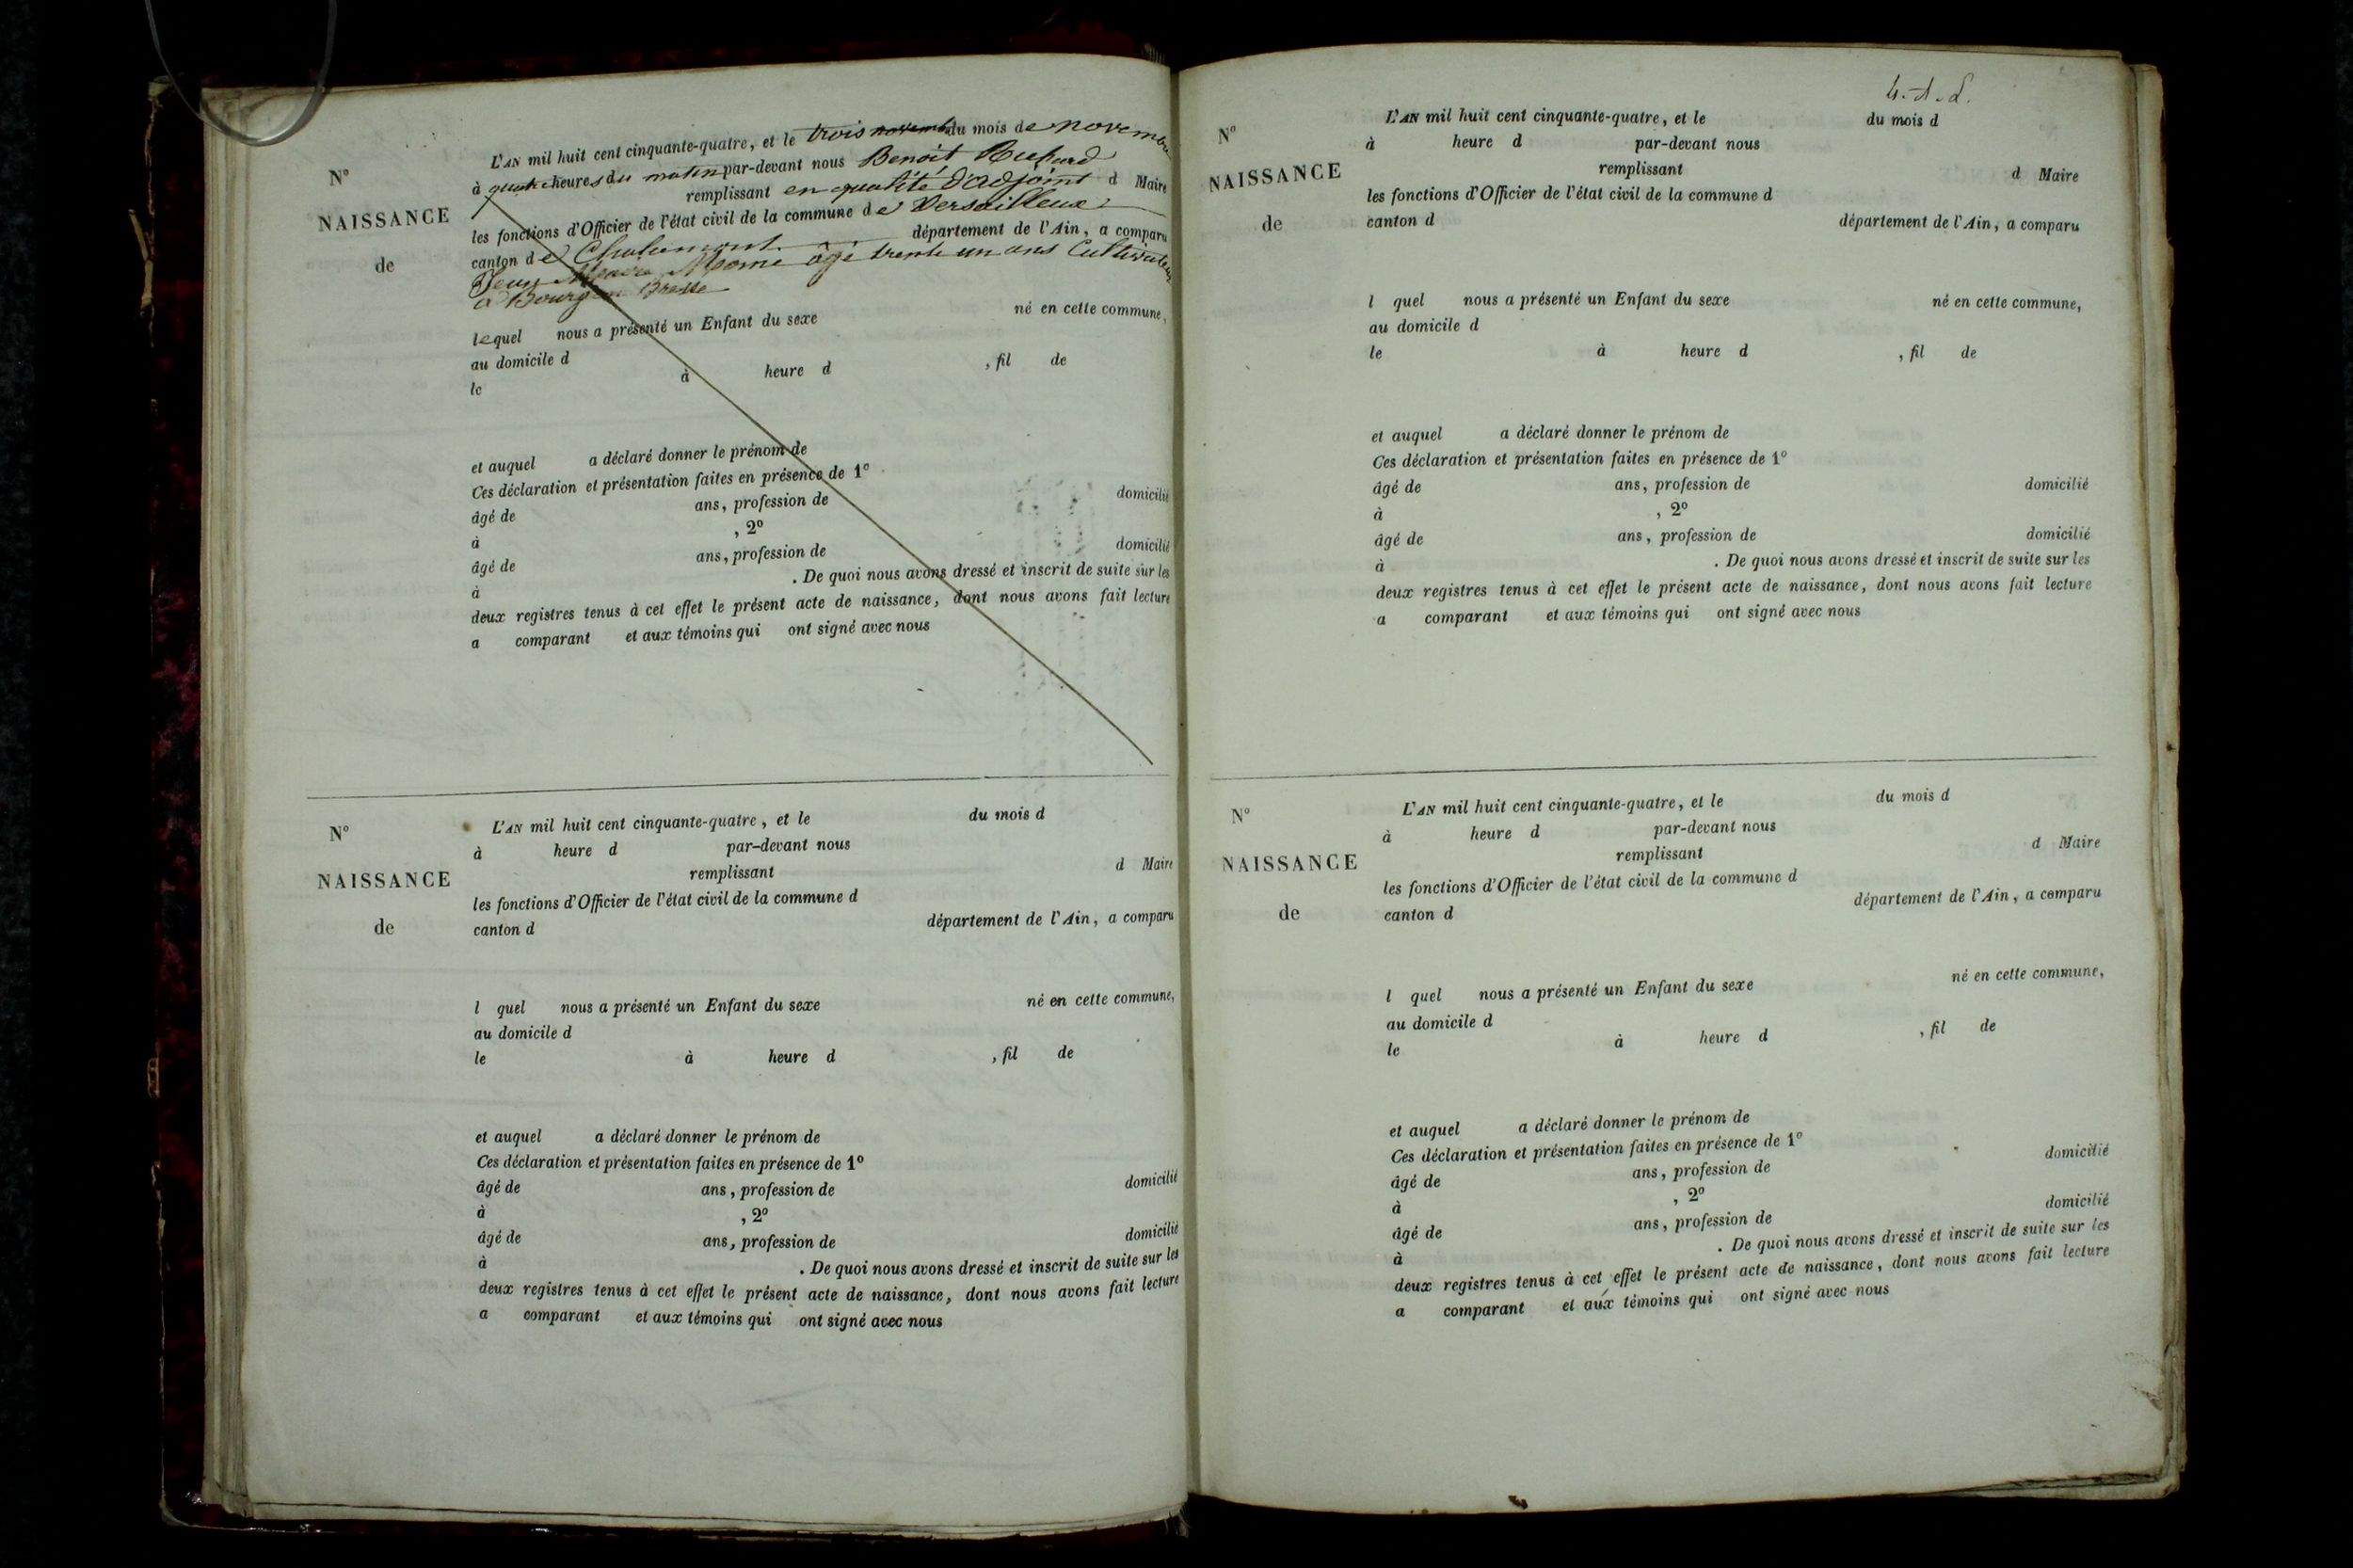 N°
NAISSANCE
de
L'AN mil huit cent cinquante-quatre, et le trois novembre du mois de novembre
à quatre heures du matin par-devant nous Benoit Richard
remplissant en qualité d'adjoint d Maire
les fonctions d'Officier de l'état civil de la commune de Versailleux
canton de Chalamont département de l'Ain, a comparu
Jean Marie âgé trente un ans Cultivateur
a Bourg en Bresse
lequel nous a présenté un Enfant du sexe né en cette commune,
au domicile d
le à heure d , fil de
et auquel a déclaré donner le prénom de
Ces déclaration et présentation faites en présence de 1°
âgé de ans, profession de domicilié
à , 2°
âgé de ans, profession de domicilié
à . De quoi nous avons dressé et inscrit de suite sur les
deux registres tenus à cet effet le présent acte de naissance, dont nous avons fait lecture
a comparant et aux témoins qui ont signé avec nous
N°
NAISSANCE
de
L'AN mil huit cent cinquante-quatre, et le du mois d
à heure d par-devant nous
remplissant d Maire
les fonctions d'Officier de l'état civil de la commune d
canton d département de l'Ain, a comparu
l quel nous a présenté un Enfant du sexe né en cette commune,
au domicile d
le à heure d , fil de
et auquel a déclaré donner le prénom de
Ces déclaration et présentation faites en présence de 1°
âgé de ans, profession de domicilié
à , 2°
âgé de ans, profession de domicilié
à . De quoi nous avons dressé et inscrit de suite sur les
deux registres tenus à cet effet le présent acte de naissance, dont nous avons fait lecture
a comparant et aux témoins qui ont signé avec nous
N°
NAISSANCE
de
L'AN mil huit cent cinquante-quatre, et le du mois d
à heure d par-devant nous
remplissant d Maire
les fonctions d'Officier de l'état civil de la commune d
canton d département de l'Ain, a comparu
l quel nous a présenté un Enfant du sexe né en cette commune,
au domicile d
le à heure d , fil de
et auquel a déclaré donner le prénom de
Ces déclaration et présentation faites en présence de 1°
âgé de ans, profession de domicilié
à , 2°
âgé de ans, profession de domicilié
à . De quoi nous avons dressé et inscrit de suite sur les
deux registres tenus à cet effet le présent acte de naissance, dont nous avons fait lecture
a comparant et aux témoins qui ont signé avec nous
N°
NAISSANCE
de
L'AN mil huit cent cinquante-quatre, et le du mois d
à heure d par-devant nous
remplissant d Maire
les fonctions d'Officier de l'état civil de la commune d
canton d département de l'Ain, a comparu
l quel nous a présenté un Enfant du sexe né en cette commune,
au domicile d
le à heure d , fil de
et auquel a déclaré donner le prénom de
Ces déclaration et présentation faites en présence de 1°
âgé de ans, profession de domicilié
à , 2°
âgé de ans, profession de domicilié
à . De quoi nous avons dressé et inscrit de suite sur les
deux registres tenus à cet effet le présent acte de naissance, dont nous avons fait lecture
a comparant et aux témoins qui ont signé avec nous